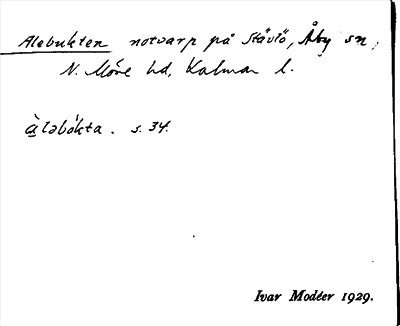 Alebukten notvarp på Stävlö, Åby sn,
N. Möre hd, Kalmar l.
àləbókta. s. 34.
Ivar Modéer 1929.